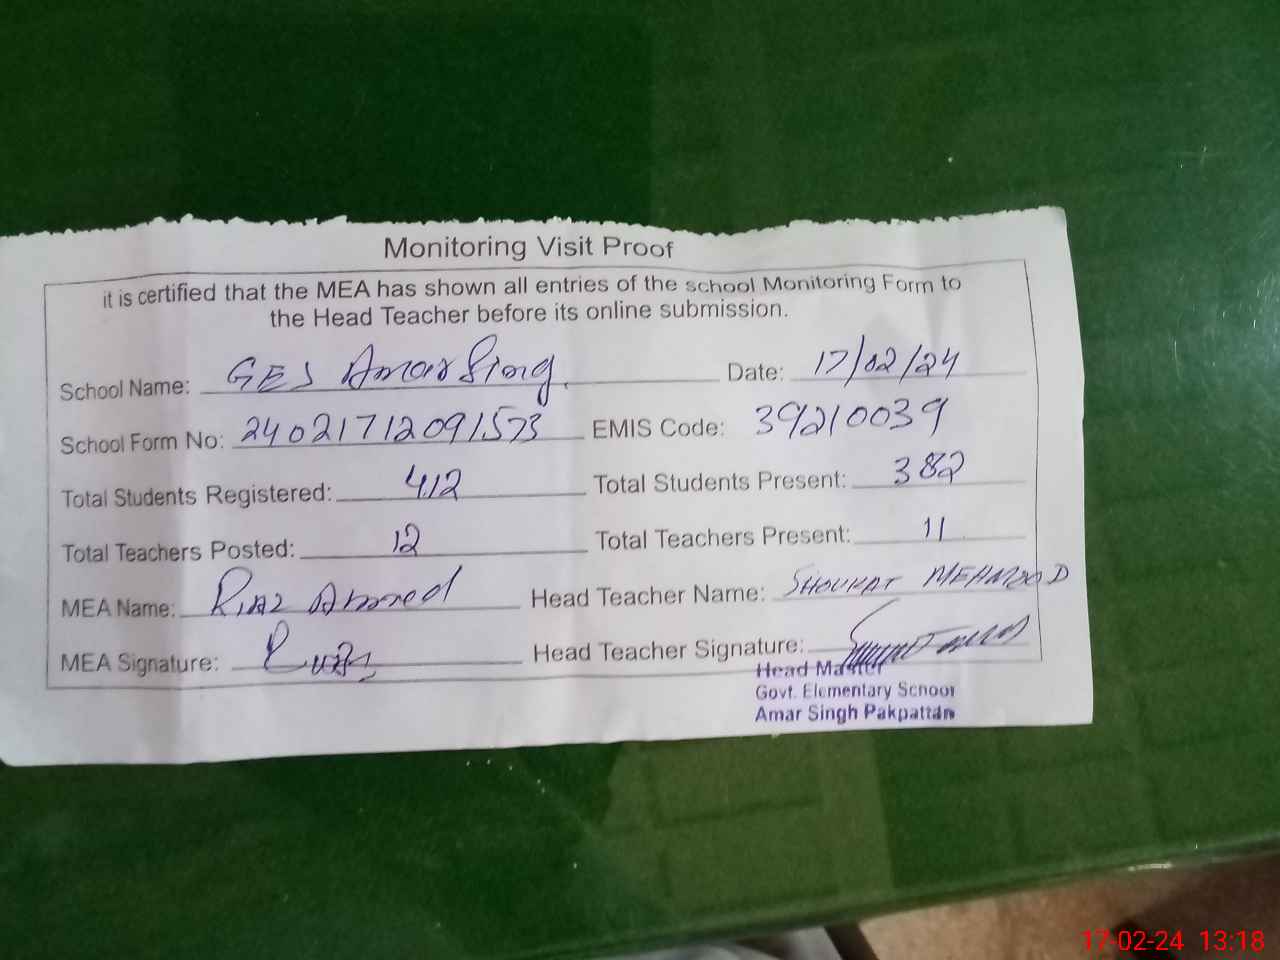 Monitoring Visit Proof
it is certified that the MEA has shown all entries of the school Monitoring Form to
the Head Teacher before its online submission.
School Name: GES Amar Sing. Date: 17/02/24
School Form No: 24021712091573 EMIS Code: 39210039
Total Students Registered: 412 Total Students Present: 382
Total Teachers Posted: 12 Total Teachers Present: 11
MEA Name: Riaz Ahmed Head Teacher Name: SHOUKAT MEHMOOD
MEA Signature: Head Teacher Signature:
Head Master
Govt. Elementary School
Amar Singh Pakpattan
17-02-24 13:18